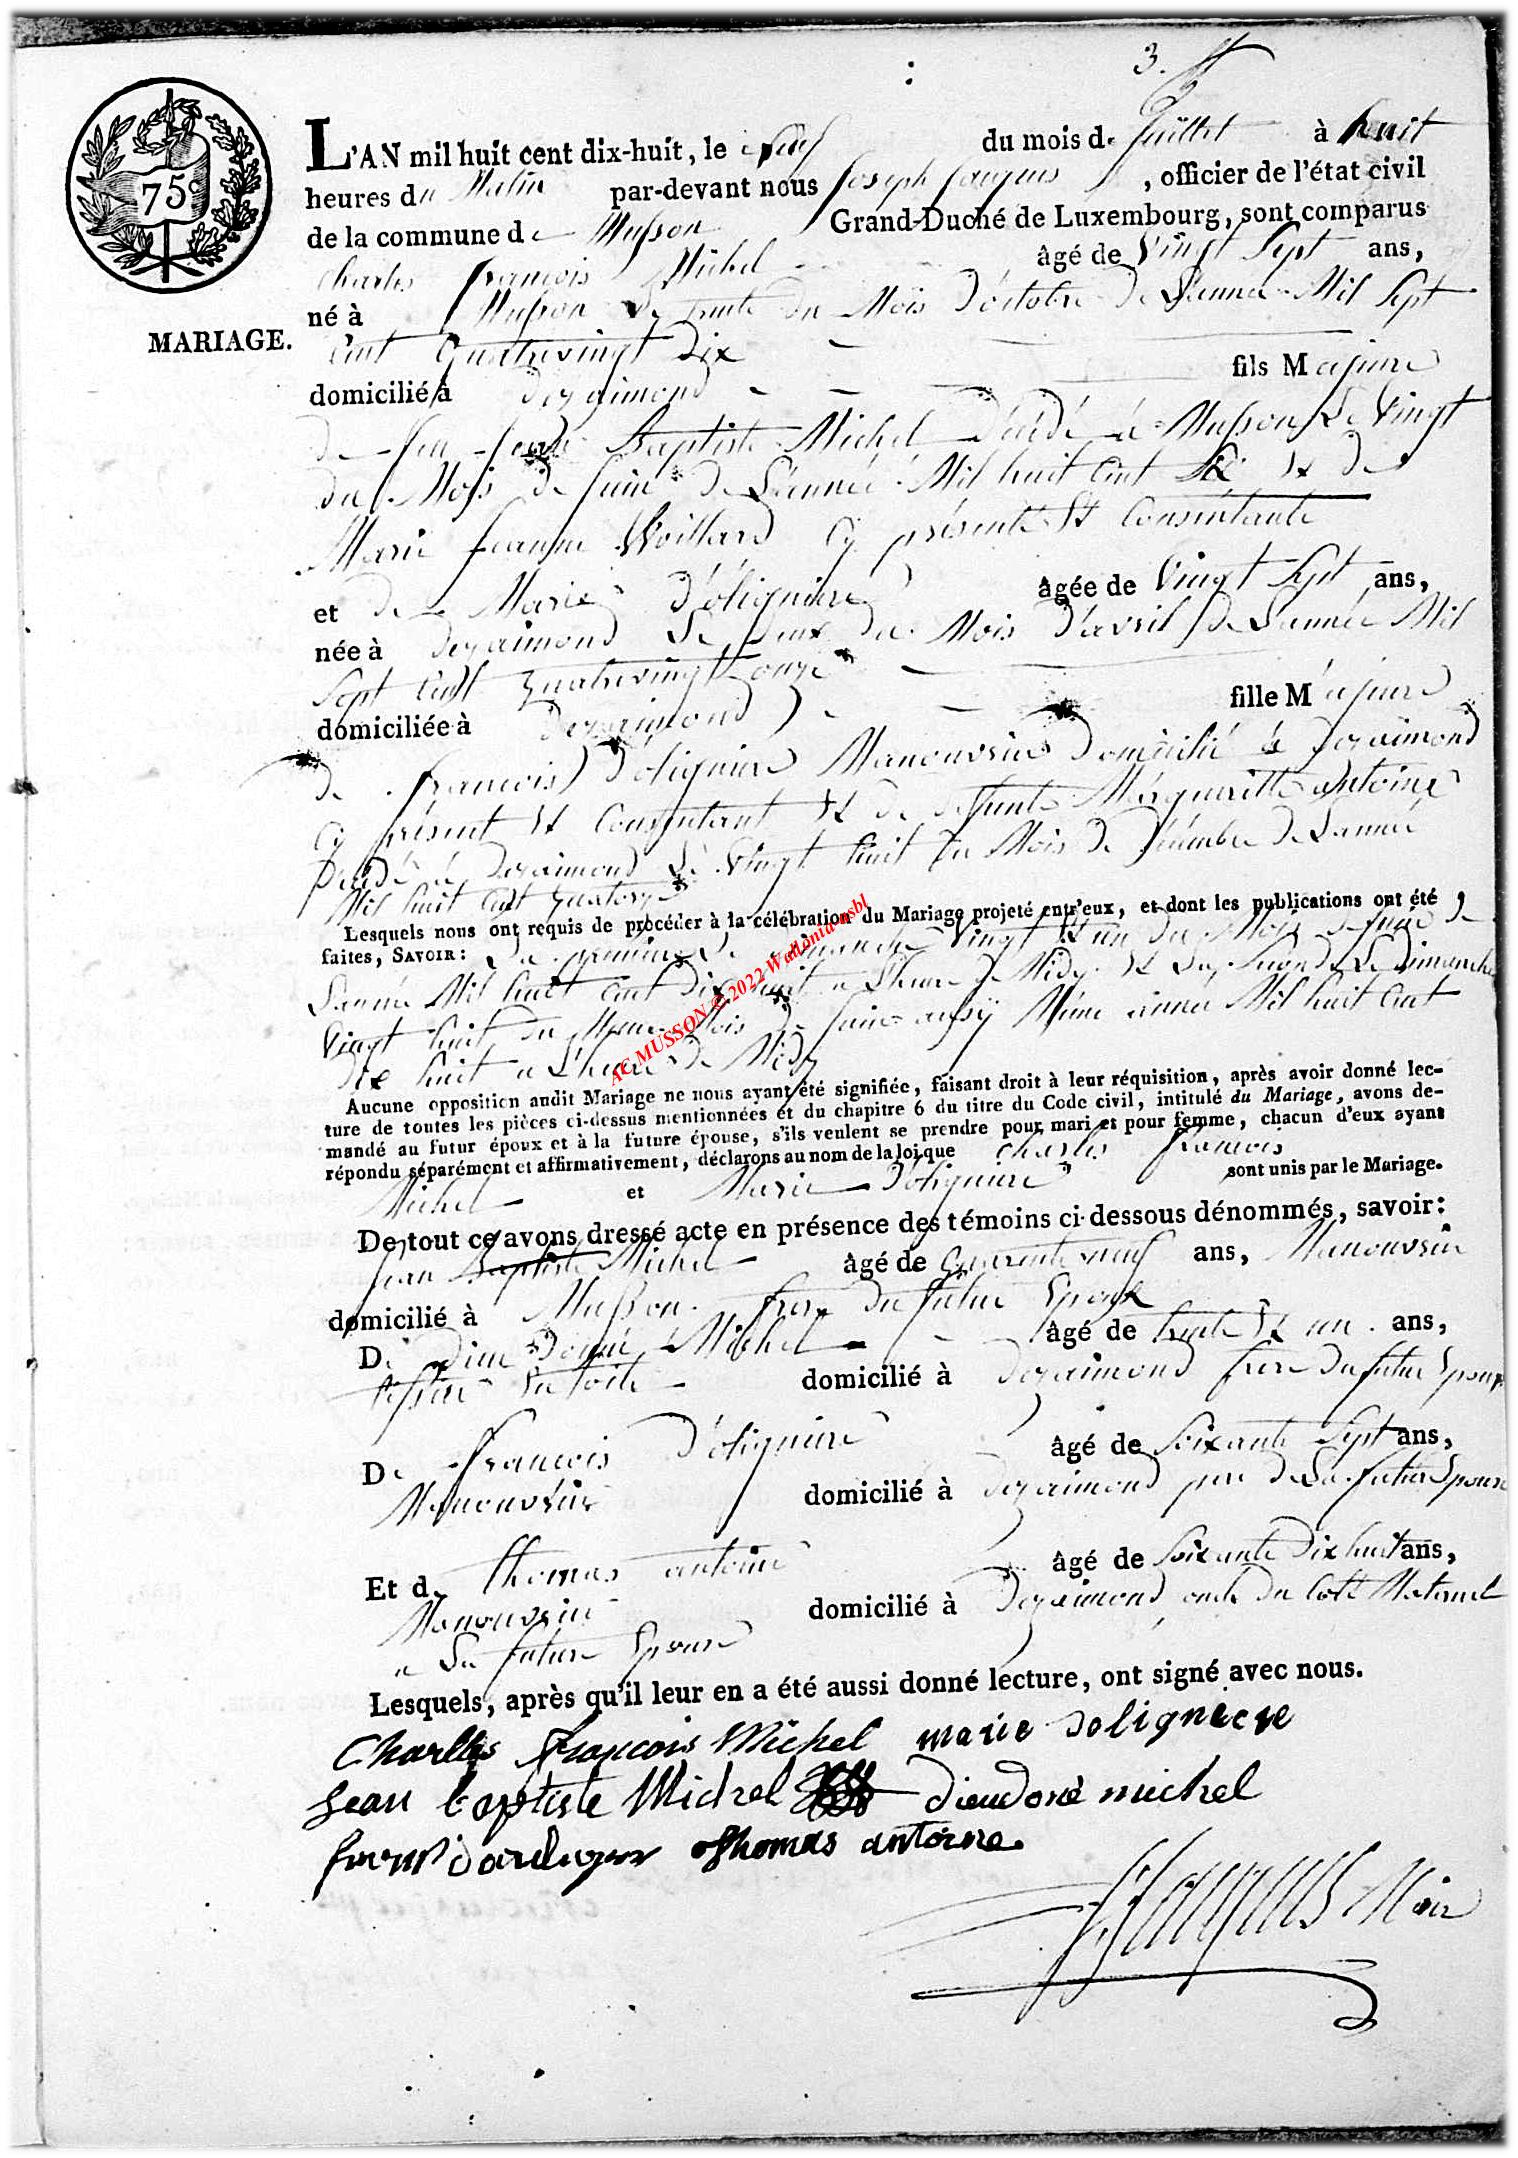 3.
75c
MARIAGE.
L'AN mil huit cent dix-huit, le neuf du mois de Juillet à huit
heures du Matin par-devant nous Joseph Jacques, officier de l'état civil
de la commune de Musson Grand-Duché de Luxembourg, sont comparus
Charles François Michel âgé de Vingt Sept ans,
né à Musson Le trente du Mois D'octobre De L'année Mil Sept
Cent Quatrevingt Dix
domicilié à fils Majeure
De feu Jean Baptiste Michel Décédé à Musson Le Vingt
du Mois de Juin De L'année Mil huit Cent Et De
Marie Jeanne Woillard Cy présente Et Consentante
et de Marie D'olignière âgée de Vingt Sept ans,
née à Le Deux Du Mois D'avril De L'année Mil
Sept Cent Quatrevingt onze
domiciliée à fille Majeure
De François D'olignière Manouvrier Domicilié à
Cy présent Et Consentant Et De defunte Margueritte antoine
Décédé à Le Vingt huit Du Mois De Décembre De L'année
Mil huit Cent Quatorze
Lesquels nous ont requis de procéder à la célébration du Mariage projeté entr'eux, et dont les publications ont été
faites, SAVOIR: La première Le Dimanche Vingt Et un Du Mois De Juin De
L'année Mil huit Cent Dix huit a L'heure De Midy Et La Seconde Le Dimanche
Vingt huit Du Meme Mois De Juin aussy Même année Mil huit Cent
Dix huit a L'heure De Midy
Aucune opposition audit Mariage ne nous ayant été signifiée, faisant droit à leur réquisition, après avoir donné lec-
ture de toutes les pièces ci-dessus mentionnées et du chapitre 6 du titre du Code civil, intitulé du Mariage, avons de-
mandé au futur époux et à la future épouse, s'ils veulent se prendre pour mari et pour femme, chacun d'eux ayant
répondu séparément et affirmativement, déclarons au nom de la loi que Charles François
Michel et Marie D'olignière sont unis par le Mariage.
De tout ce avons dressé acte en présence des témoins ci-dessous dénommés, savoir:
Jean Baptiste Michel âgé de Quarente neuf ans, Manouvrier
domicilié à Musson frere Du futur Epoux
De Dieu Donné Michel âgé de trente Et un ans,
domicilié à frere Du futur Epoux
De François D'olignière âgé de Soixante Sept ans,
Manouvrier domicilié à pere De La future Epouse
Et de Thomas antoine âgé de Soixante Dix huit ans,
Manouvrier domicilié à oncle Du Coté Maternel
a La future Epouse
Lesquels, après qu'il leur en a été aussi donné lecture, ont signé avec nous.
Charles François Michel marie dolignière
Jean baptiste Michel dieudoné michel
thomas antoine
J Jacques Maire
AC MUSSON © 2022 Wallonia asbl